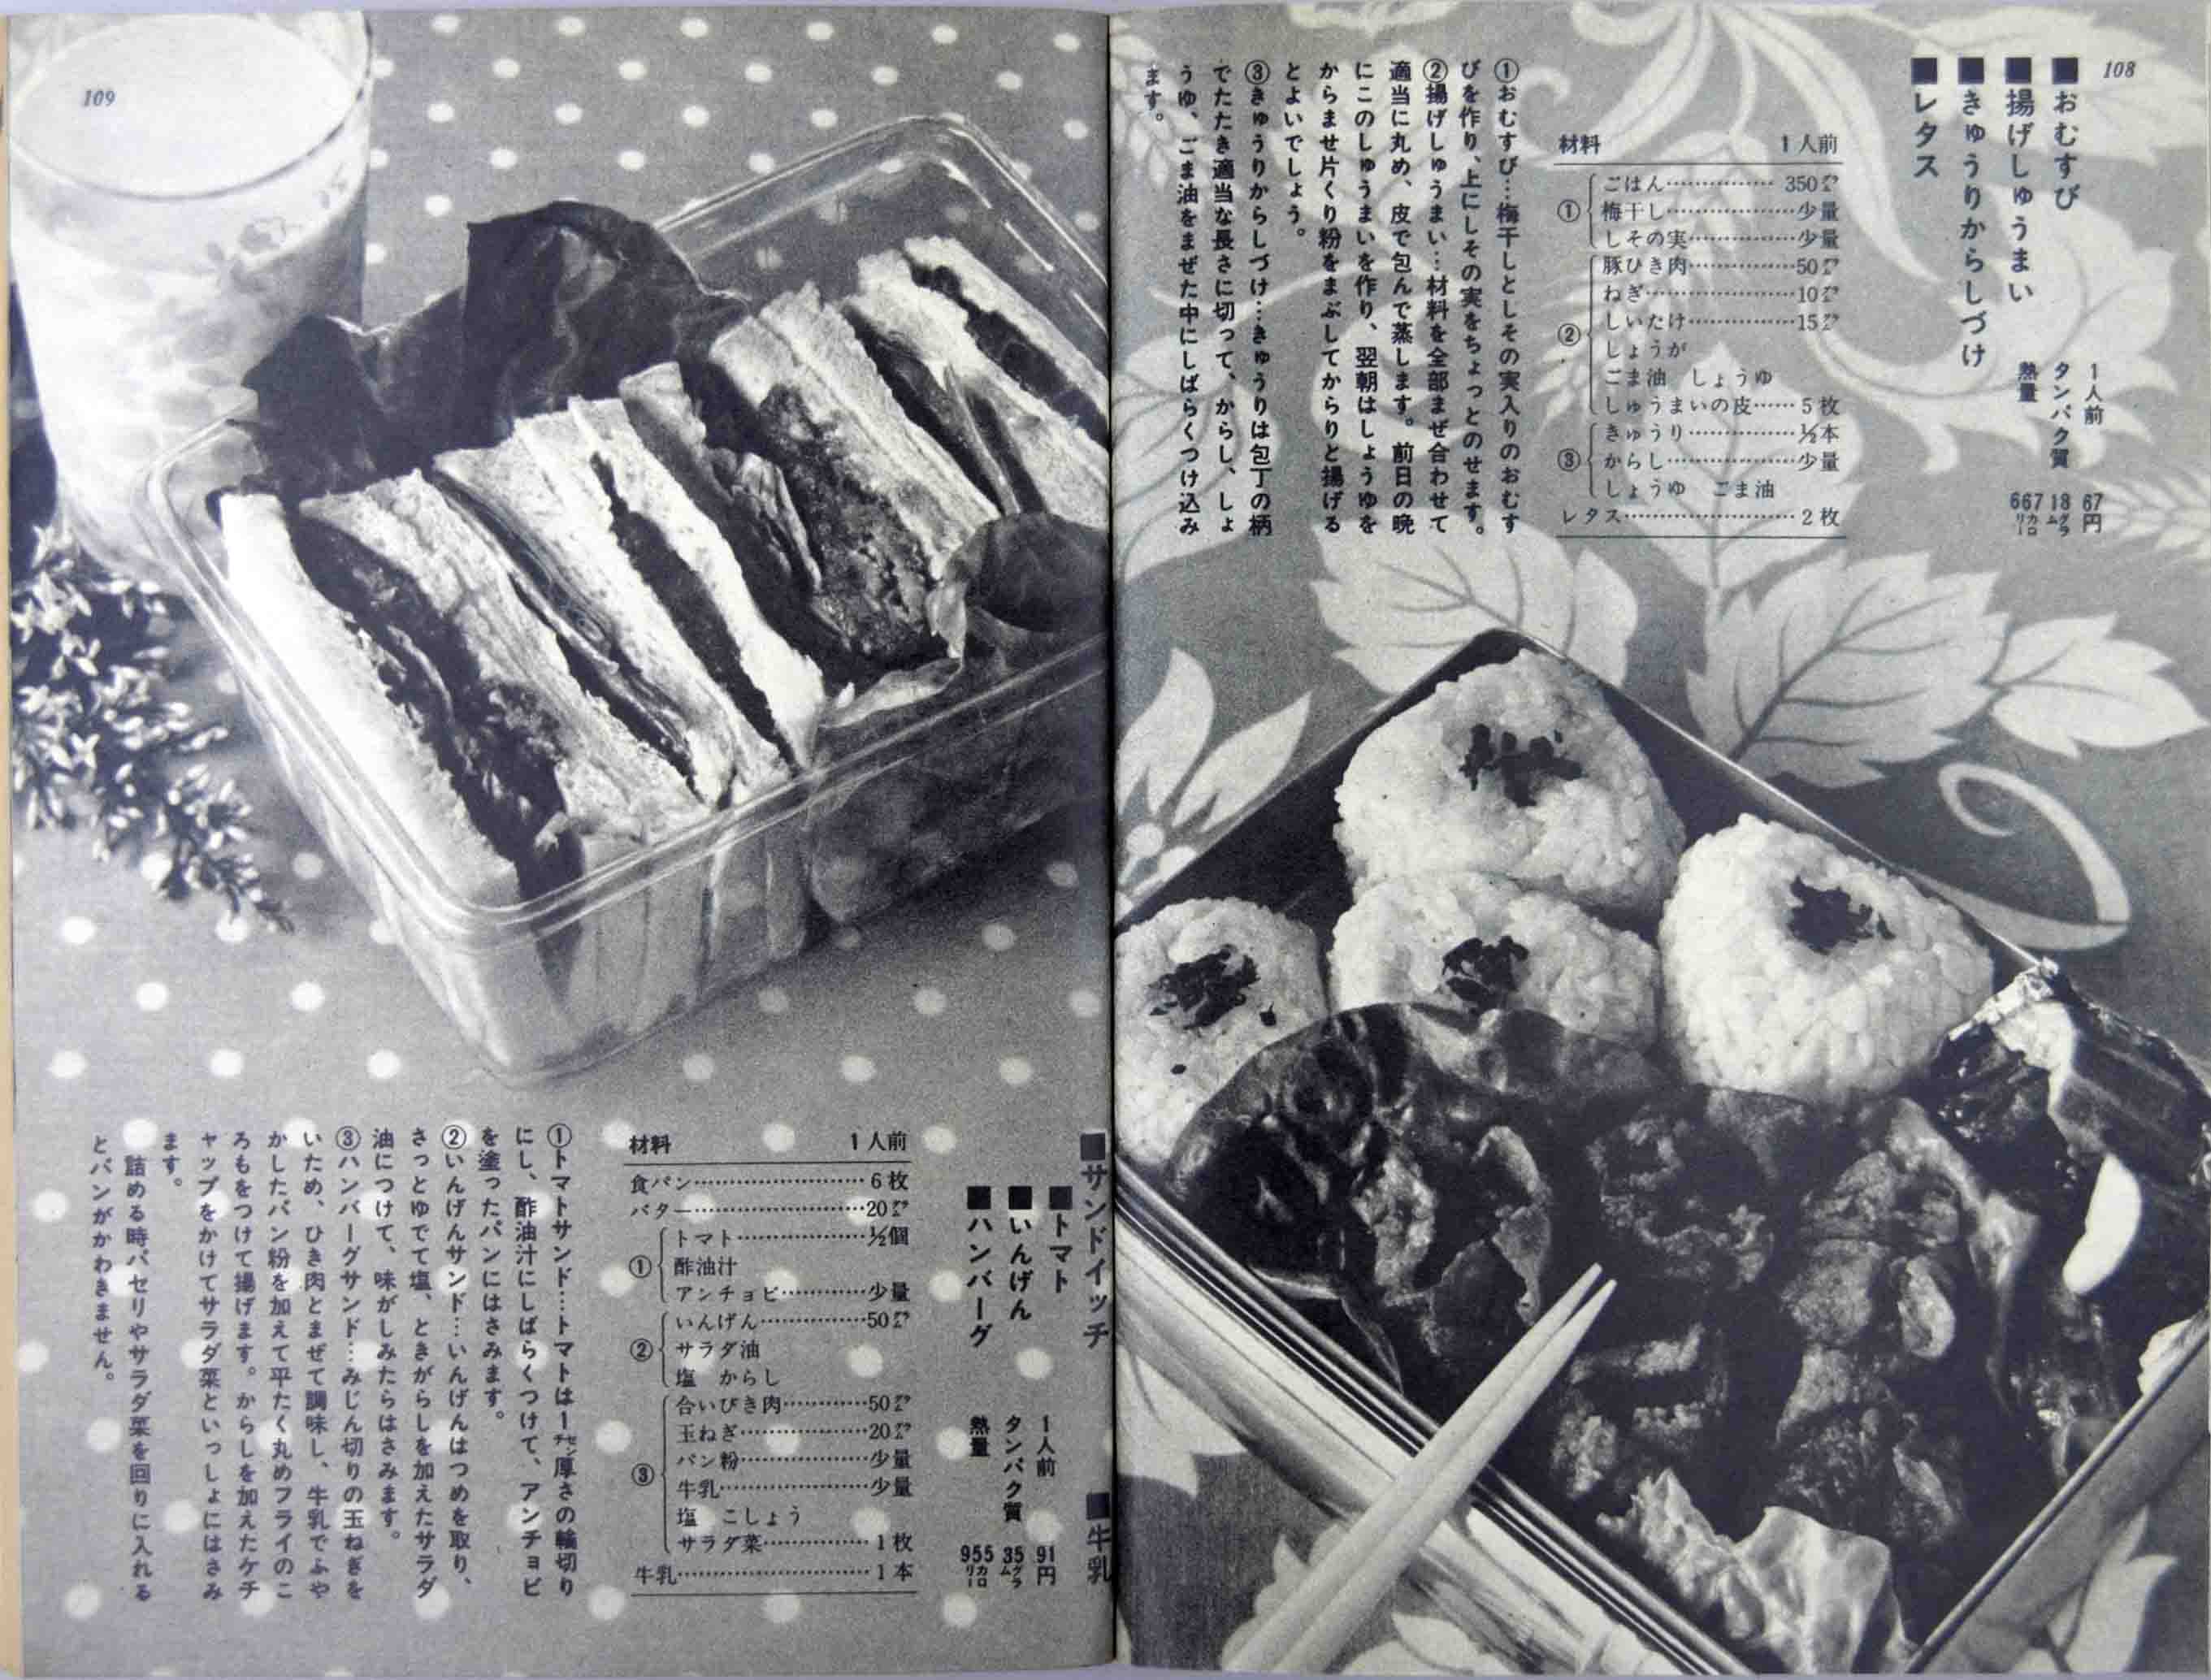 108
■おむすび
■揚げしゅうまい
■きゅうりからしづけ
■レタス
1人前 67円
タンパク質 18グラム
熱量 667カロリー
材料 1人前
①
ごはん…………… 350グラム
梅干し………………少量
しその実……………少量
②
豚ひき肉……………50グラム
ねぎ…………………10グラム
しいたけ……………15グラム
しょうが
ごま油 しょうゆ
しゅうまいの皮……5枚
③
きゅうり……………½本
からし………………少量
しょうゆ ごま油
レタス…………………2枚
①おむすび…梅干しとしその実入りのおむす
びを作り、上にしその実をちょっとのせます。
②揚げしゅうまい…材料を全部まぜ合わせて
適当に丸め、皮で包んで蒸します。前日の晩
にこのしゅうまいを作り、翌朝はしょうゆを
からませ片くり粉をまぶしてからりと揚げる
とよいでしょう。
③きゅうりからしづけ…きゅうりは包丁の柄
でたたき適当な長さに切って、からし、しょ
うゆ、ごま油をまぜた中にしばらくつけ込み
ます。
109
■サンドイッチ ■牛乳
■トマト
■いんげん
■ハンバーグ
1人前 91円
タンパク質 35グラム
熱量 955カロリー
材料 1人前
食パン………………6枚
バター………………20グラム
①
トマト……………½個
酢油汁
アンチョビ…………少量
②
いんげん……………50グラム
サラダ油
塩 からし
③
合いびき肉…………50グラム
玉ねぎ………………20グラム
パン粉………………少量
牛乳…………………少量
塩 こしょう
サラダ菜……………1枚
牛乳…………………1本
①トマトサンド…トマトは1センチ厚さの輪切り
にし、酢油汁にしばらくつけて、アンチョビ
を塗ったパンにはさみます。
②いんげんサンド…いんげんはつめを取り、
さっとゆでて塩、ときがらしを加えたサラダ
油につけて、味がしみたらはさみます。
③ハンバーグサンド…みじん切りの玉ねぎを
いため、ひき肉とまぜて調味し、牛乳でふや
かしたパン粉を加えて平たく丸めフライのこ
ろもをつけて揚げます。からしを加えたケチ
ャップをかけてサラダ菜といっしょにはさみ
ます。
詰める時パセリやサラダ菜を回りに入れる
とパンがかわきません。